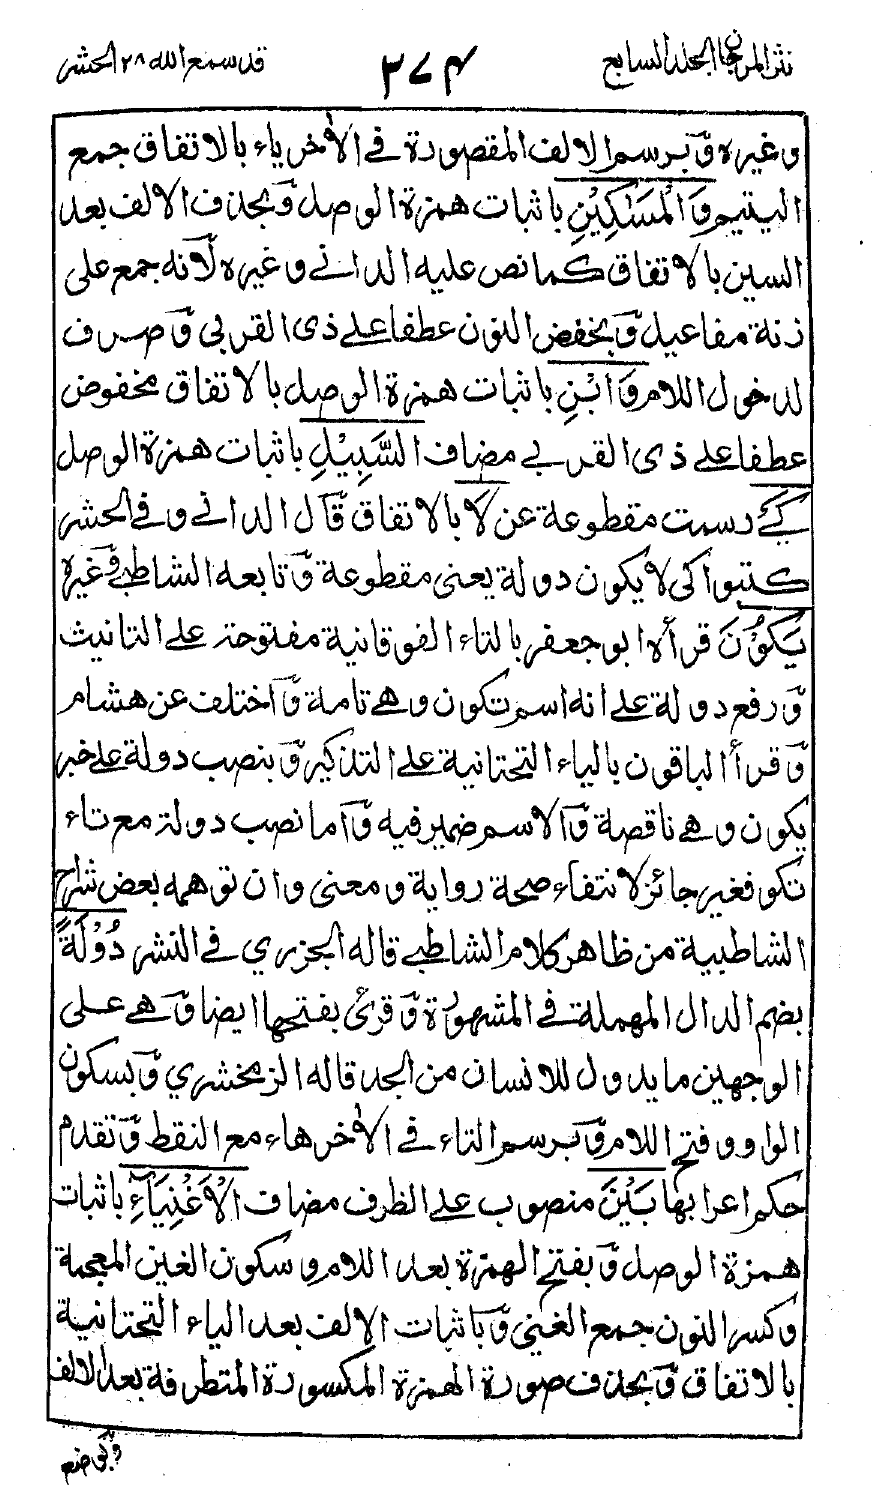 نثر المرجان الجلد السابع ٣٧٤ قد سمع الله ٢٨ الحشر
وغيره وَبرسم الالف المقصورة في الآخر ياء بالاتفاق جمع
اليتيم وَالْمَسٰكِيْنِ باثبات همزة الوصل وَبحذف الالف بعد
السين بالاتفاق كما نص عليه الداني وغيره لانه جمع على
زنة مفاعيل وَبخفض النون عطفا على ذى القربى وَصرف
لدخول اللام وَابْنِ باثبات همزة الوصل بالاتفاق مخفوض
عطفا على ذى القربى مضاف السَّبِيْلِ باثبات همزة الوصل
كَيْ رسمت مقطوعة عن لَا بالاتفاق قال الداني وفي الحشر
كتبوا كى لا يكون دولة يعنى مقطوعة وَتابعه الشاطبي وغيره
يَكُوْنَ قرأه ابو جعفر بالتاء الفوقانية مفتوحة على التانيث
وَرفع دولة على انه اسم تكون وهي تامة وَاختلف عن هشام
وَقرأ الباقون بالياء التحتانية على التذكير وَبنصب دولة على خبر
يكون وهي ناقصة وَالاسم ضمير فيه وَاما نصب دولة مع تاء
تكو فغير جائز لانتفاء صحة رواية ومعنى وان توهمه بعض شراح
الشاطبية من ظاهر كلام الشاطبي قاله الجزري في النشر دُوْلَةً
بضم الدال المهملة في المشهورة وَقرئ بفتحها ايضا وَهي على
الوجهين ما يدول للانسان من الجد قاله الزمخشري وَبسكون
الواو وفتح اللام وَبرسم التاء في الآخر هاء مع النقط وَتقدم
حكم اعرابها بَيْنَ منصوب على الظرف مضاف الْاَغْنِيَآءِ باثبات
همزة الوصل وَبفتح الهمزة بعد اللام وسكون الغين المعجمة
وكسر النون جمع الغني وَباثبات الالف بعد الياء التحتانية
بالاتفاق وَبحذف صورة الهمزة المكسورة المتطرفة بعد الالف